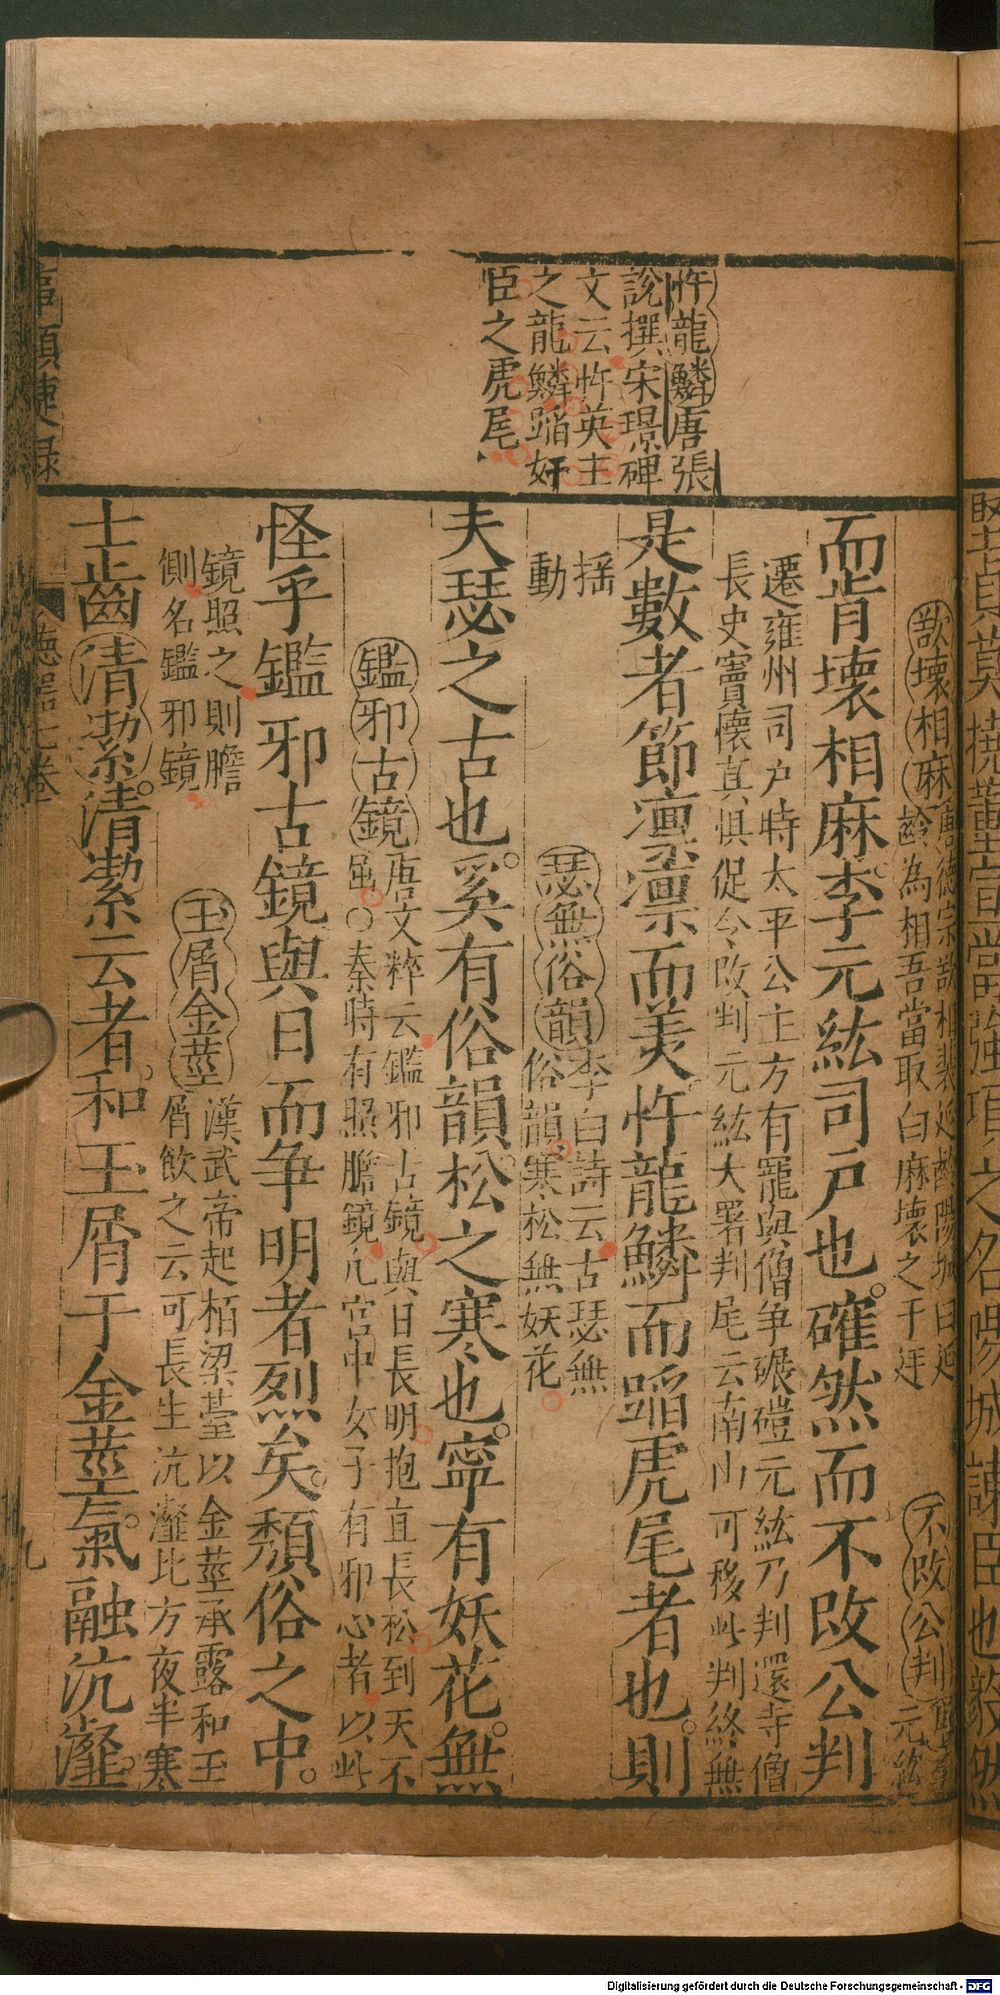 忤龍鱗唐張
說撰宋璟碑
文云忤英主
之龍鱗蹈奸
臣之虎尾
歆壞相麻唐德宗歆相裴延齡陽城曰延
齡為相吾當取白麻壞之于廷
不改公判
元紘
而肯壞相麻李元紘司戶也確然而不改公判
遷雍州司户時太平公主方有寵與僧争碾磑元紘乃判還寺僧
長史竇懷真惧促令改判元紘大署判尾云南山可移此判終無
是數者節凛凛而美忤龍鱗而蹈虎尾者也則
揺
動
瑟無俗韻李白詩云古瑟無
俗韻寒松無妖花
夫瑟之古也奚有俗韻松之寒也寧有妖花無
鑑邪古鏡唐文粹云鑑邪古鏡與日長明抱直長松到天不
秦時有照膽鏡凡宮中女子有邪心者以此
怪乎鑑邪古鏡與日而争明者烈矣頽俗之中
鏡照之則膽
側名鑑邪鏡
玉屑金莖漢武帝起栢梁臺以金莖承露和玉
屑飲之云可長生沆瀣比方夜半寒
士齒清潔清潔云者和玉屑于金莖氣融沆瀣
事類捷錄
七卷
九
當強項之名陽城諫臣也毅然
Digitalisierung gefördert durch die Deutsche Forschungsgemeinschaft - DFG